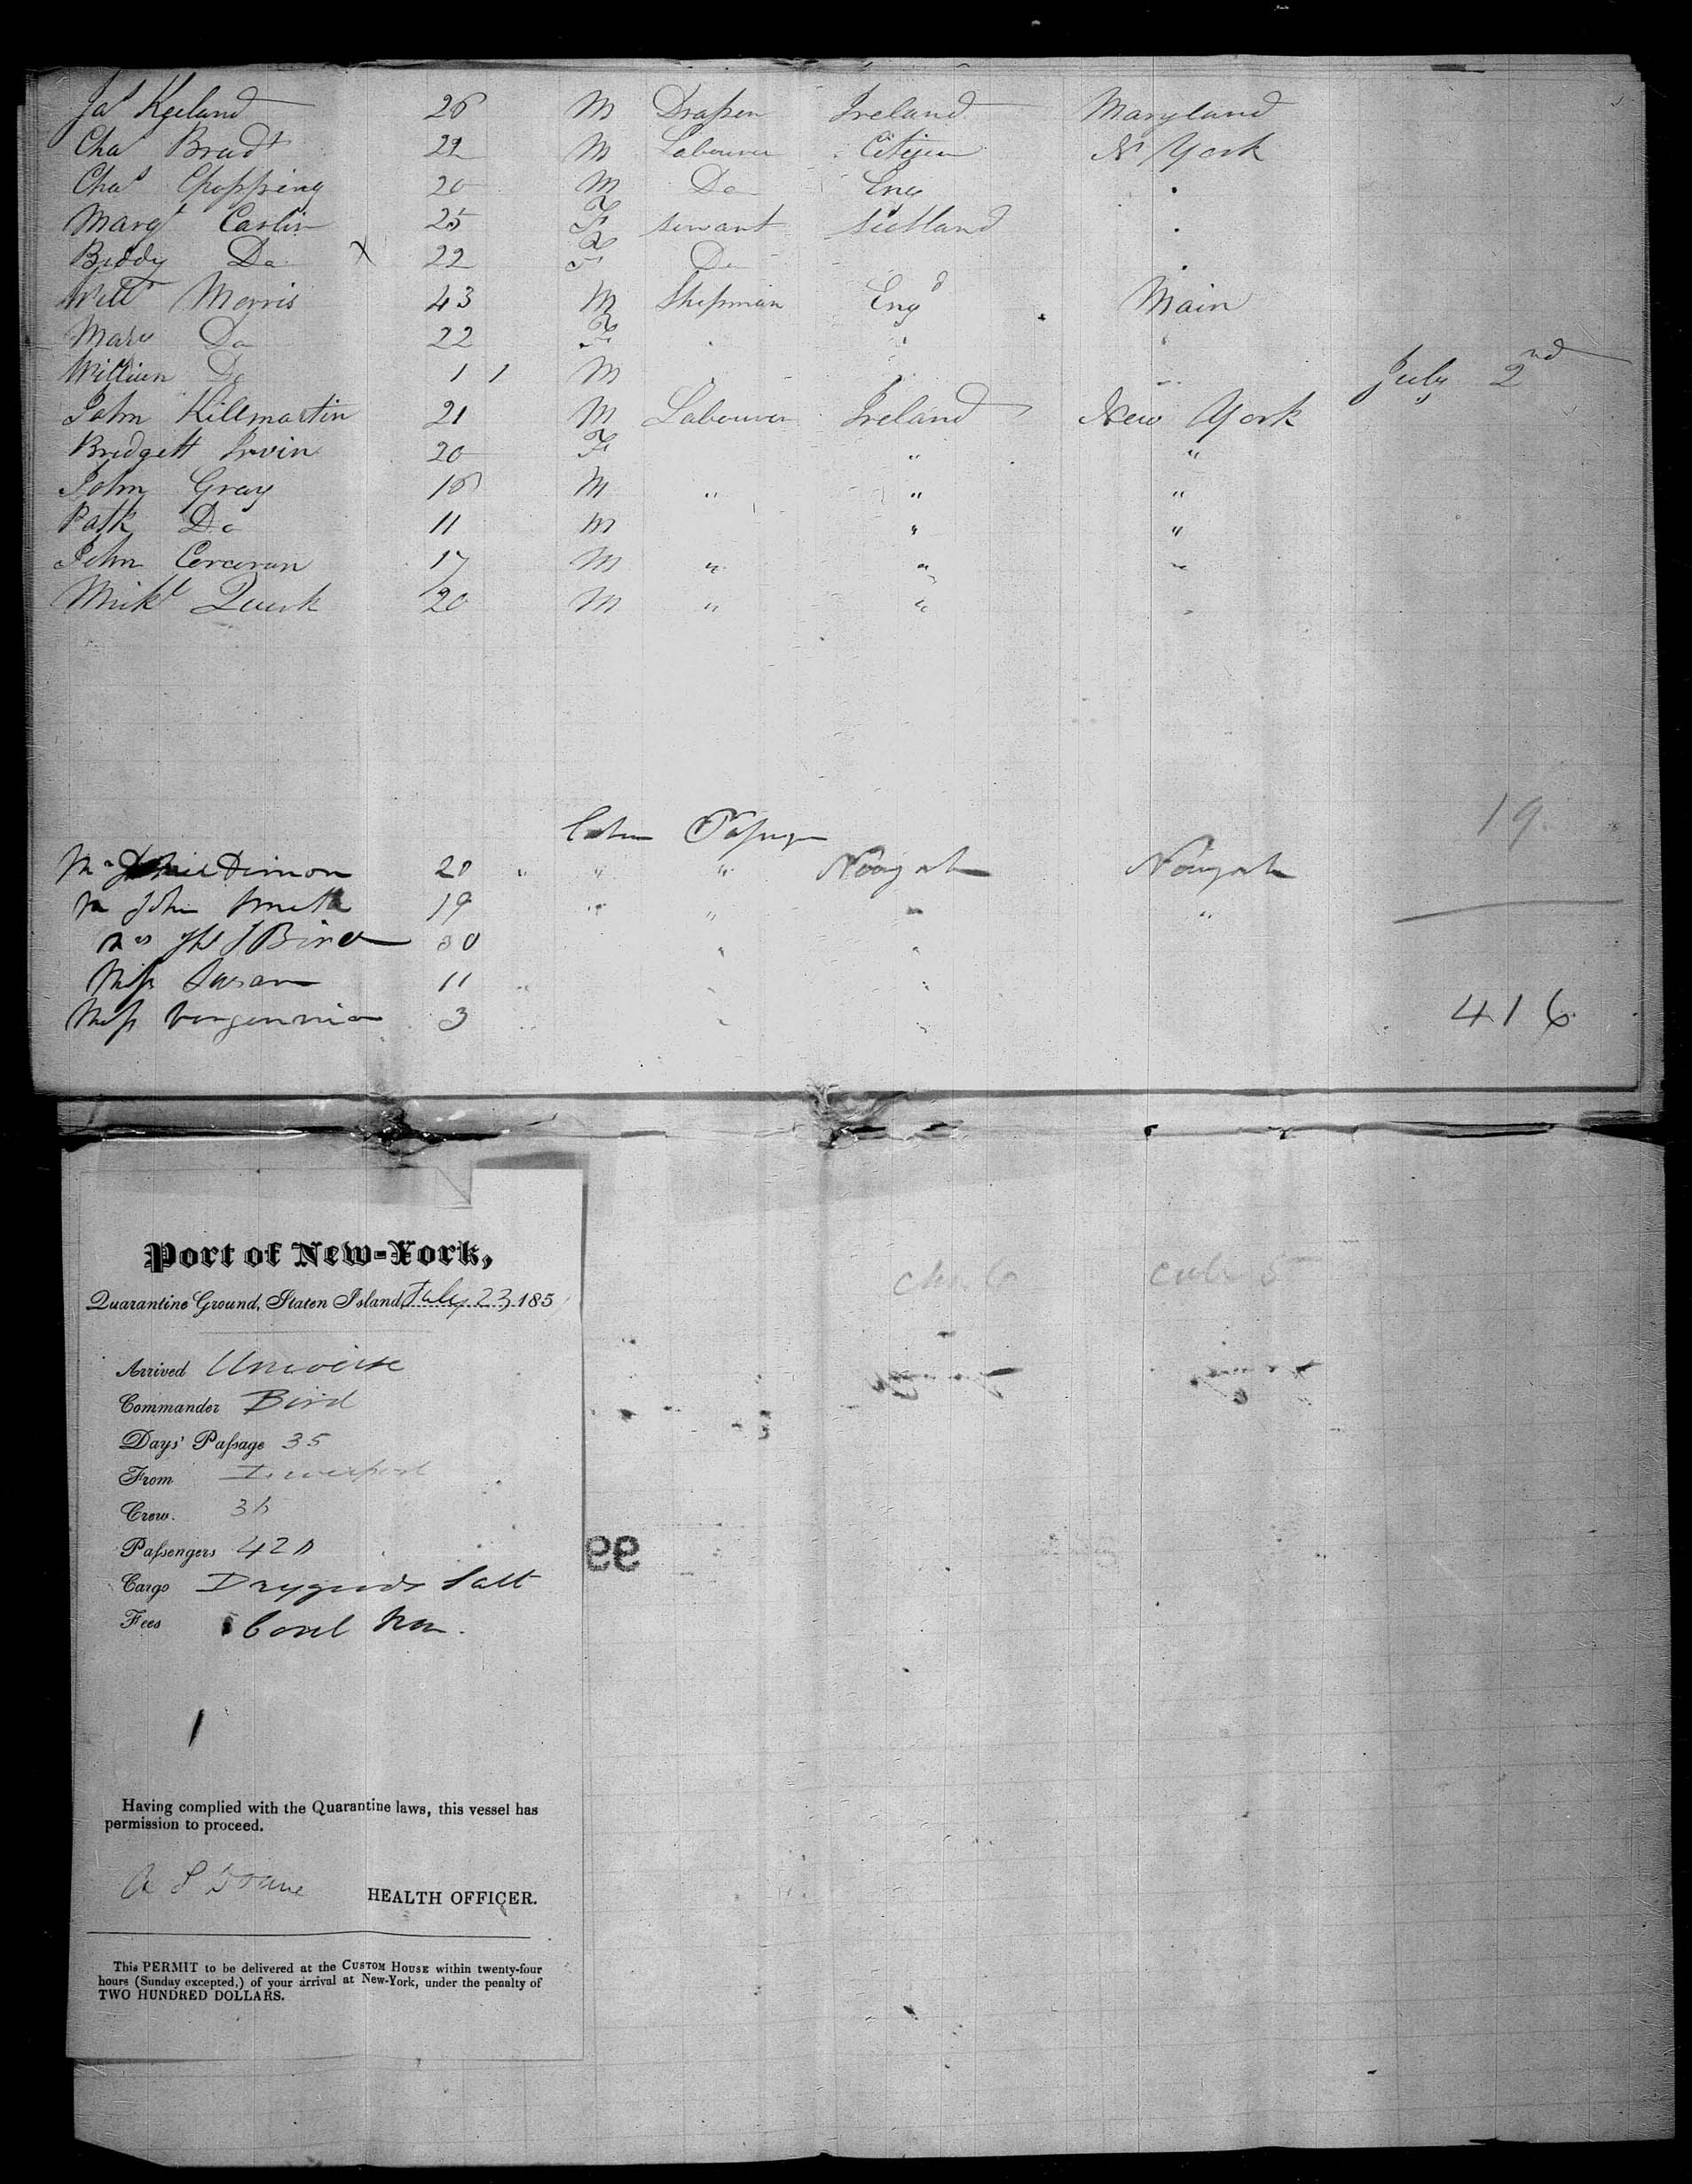 Jas Keeland 26 M Draper Ireland Maryland
Chas Bradt 22 M Labourer Citizen N York
Chas Chopping 20 M Do Eng
Margt Carlin 25 F servant Scotland
Biddy Do X 22 F Do
Willm Morris 43 M Shipman Engd Main
Mary Do 22 F
William Do 1 1 M
July 2nd
John Killmartin 21 M Labourer Ireland New York
Bridgett Irvin 20 F " "
John Gray 16 M " " "
Patk Do 11 M " "
John Corcoran 17 M " "
Mikl Quirk 20 M " "
19
Cabin
Dimon 20 " " " Newyork Newyork
John Smith 19 " " "
Bird 30
Miss Susan 11
Miss 3
416
Port of New-York,
Quarantine Ground, Staten Island, July 23 185
Arrived Universe
Commander Bird
Days' Passage 35
From Liverpool
Crew.
Passengers
Cargo Drygoods Salt
Fees
99
Having complied with the Quarantine laws, this vessel has
permission to proceed.
A S Doane HEALTH OFFICER.
This PERMIT to be delivered at the CUSTOM HOUSE within twenty-four
hours (Sunday excepted,) of your arrival at New-York, under the penalty of
TWO HUNDRED DOLLARS.